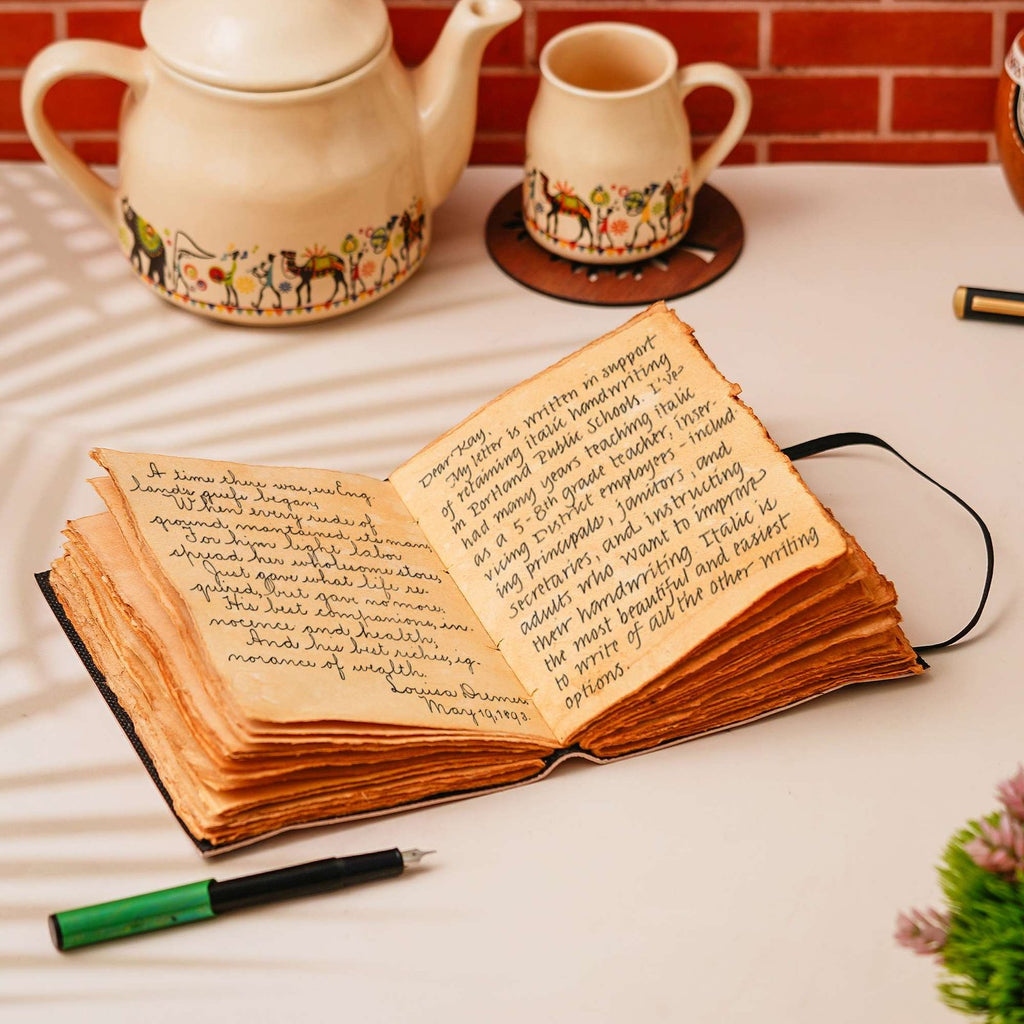 A time there was, ere Eng-
land's griefs began,
When every rude of
ground, maintained its man
For him light labor
spread her wholesome store,
Just gave what life re-
quired, but gave no more.
His best companions, in-
nocence and health,
And his best riches, ig-
norance of wealth.
Louisa
May 19, 1893.
Dear Kay,
My letter is written in support
of retaining italic handwriting
in Portland Public Schools. I've
had many years teaching italic
as a 5-8th grade teacher, inser-
vicing District employees - includ-
ing principals, janitors, and
secretaries, and instructing
adults who want to improve
their handwriting. Italic is
the most beautiful and easiest
to write of all the other writing
options.